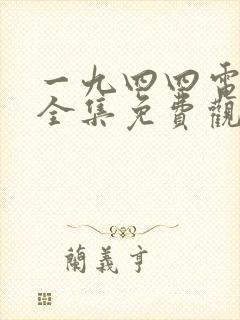 一九四四電
全集免費觀
蘭義亨